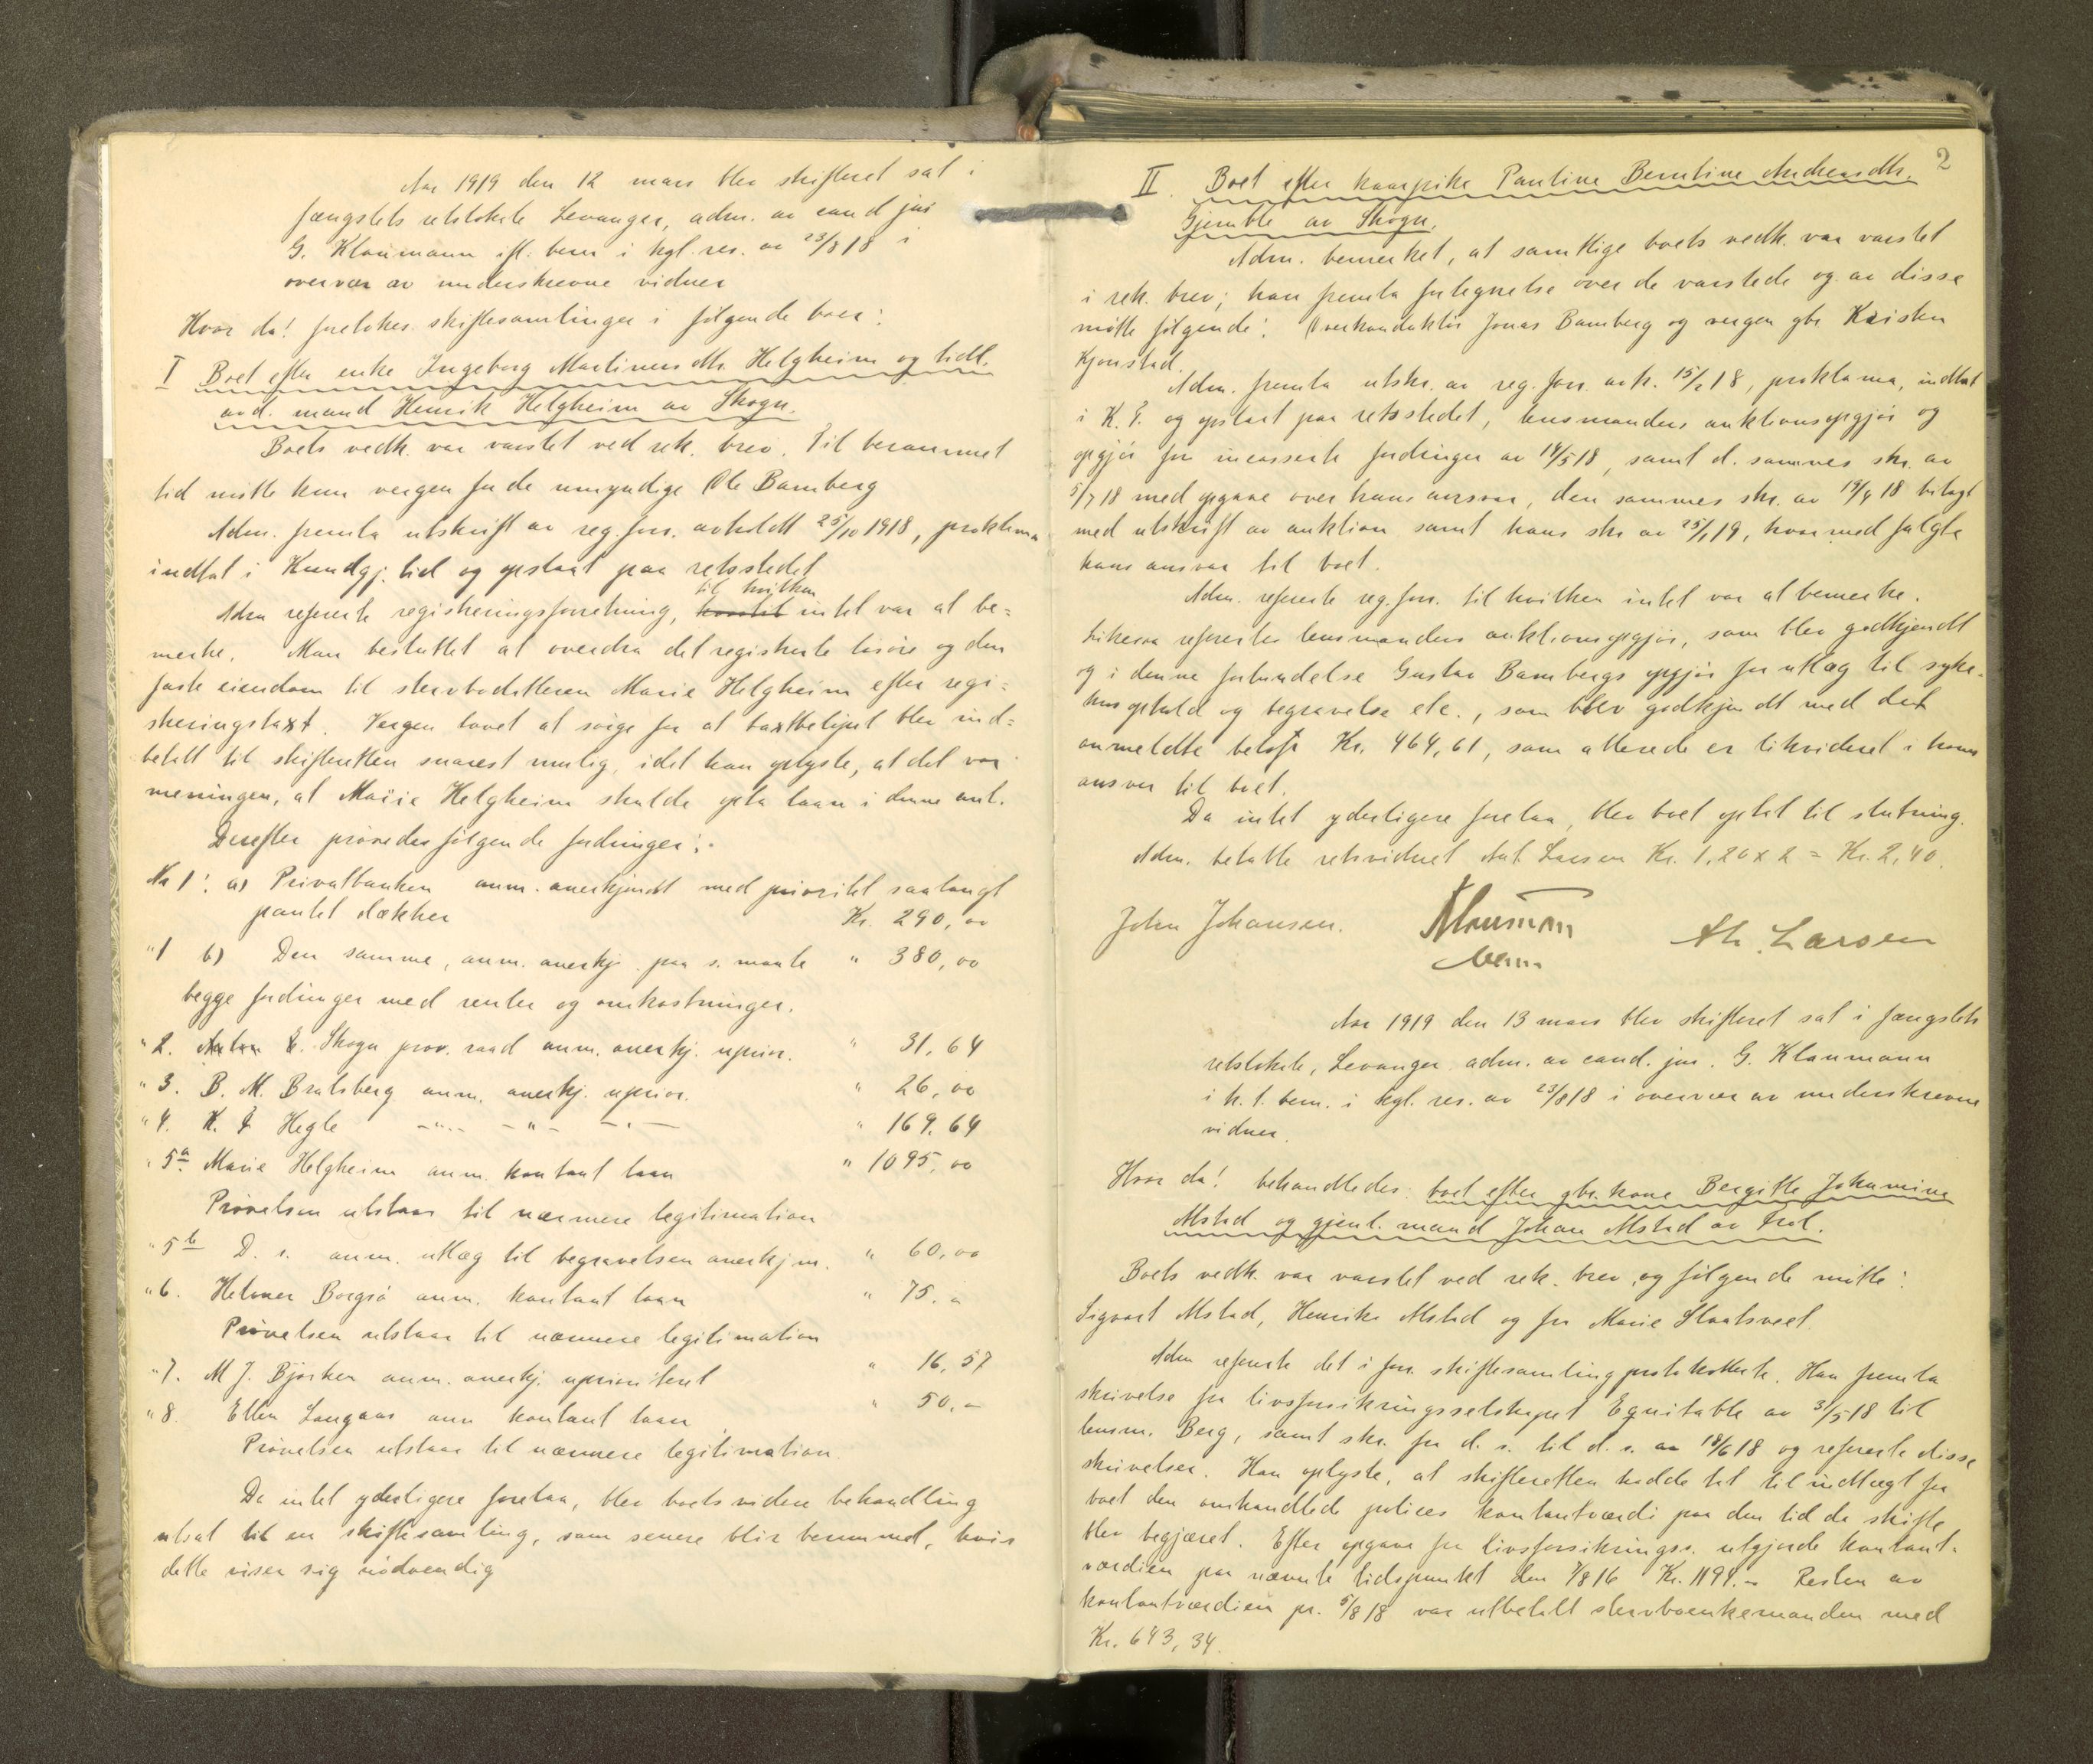 Aar 1919 den 12 mars blev skifteret sat i
fængslets retslokale Levanger, adm. av cand jur
G. Klaumann ifl. bem i kgl. res. av 23/8 18 i
overvær av underskrevne vidner
Hvor da! foretokes skiftesamlinger i følgende boer:
I Boet efter enke Ingeborg Martinusdtr. Helgheim og tidl.
avd. mand Henrik Helgheim av Skogn.
Boets vedk. var varslet ved rek. brev. Til berammet
tid møtte kun vergen for de umyndige Ole Bamberg
Adm. fremla utskrift av reg.forr. avholdt 25/10 1918, proklama
indtat i Kundgj. tid og opslaat paa retsstedet
til hvilken
Adm refererte registreringsforretning, intet var at be=
merke. Man besluttet at overdra det registrerte løsøre og den
faste eiendom til sterbodatteren Marie Helgheim efter regi=
streringstaxt. Vergen lovet at sørge for at taxtbeløpet blev ind=
betalt til skifteretten snarest mulig, idet han oplyste, at det var
meningen, at Marie Helgheim skulde opta laan i denne anl.
Derefter prøvedes følgende fordringer:
Nr 1: a) Privatbanken anm. anerkjendt med prioritet saalangt
pantet dækker Kr. 290,00
" 1 b) Den samme, anm. anerkj. paa s. maate " 380,00
begge fordringer med renter og omkostninger.
" 2. E. Skogn prov. raad anm. anerkj. uprior. " 31,64
" 3. B. M. Bratsberg anm. anerkj. uprior. " 26,00
" 4. K. Hegle -"- -"- -"- " 169,64
" 5a. Marie Helgheim anm. kontant laan " 1095,00
Prøvelsen utstaar til nærmere legitimation
" 5b D. s. anm. utlæg til begravelsen anerkj m. " 60,00
" 6. Helmer Borgsø anm. kontant laan " 75.-
Prøvelsen utstaar til nærmere legitimation
" 7. M J. Bjørken anm. anerkj. uprioritert " 16,57
" 8. Ellen Langaas anm kontant laan " 50.-
Prøvelsen utstaar til nærmere legitimation
Da intet yderligere forelaa, blev boets videre behandling
utsat til en skiftesamling, som senere blir berammet, hvis
dette viser sig nødvendig
2
II Boet efter kaarpike Pauline Berntine Andreasdtr.
Gjemble av Skogn.
Adm. bemerket, at samtlige boets vedk. var varslet
i rek. brev; han fremla fortegnelse over de varslede og av disse
møtte følgende: Overkonduktør Jonas Bamberg og vergen gbr Kristen
Kjønstad.
Adm. fremla utskr. av reg.forr. avh. 15/2 18, proklama, indtat
i K. T. og opslaat paa retsstedet, lensmandens auktionsopgjør og
opgjør for incasserte fordringer av 14/5 18, samt d. sammes skr. av
5/7 18 med opgave over hans ansvar, den sammes skr. av 19/9 18 bilagt
med utskrift av auktion samt hans skr av 25/1 19, hvormed fulgte
hans ansvar til boet.
Adm. refererte reg.forr. til hvilken intet var at bemerke.
Likesaa refererte lensmandens auktionsopgjør, som blev godkjendt
og i denne forbindelse Gustav Bambergs opgjør for utlæg til syke-
husophold og begravelse etc., som blev godkjendt med det
anmeldte beløp Kr. 464,61, som allerede er likvideret i hans
ansvar til boet.
Da intet yderligere forelaa, blev boet optat til slutning.
Adm. betalte retsvidnet Larsen Kr. 1,20 x 2 = Kr. 2,40.
John Johansen. Klaumann
bem. Larsen
Aar 1919 den 13 mars blev skifteret sat i fængslets
retslokale, Levanger adm. av cand. jur. G. Klaumann
i h. t. bem. i kgl. res. av 23/8 18 i overvær av underskrevne
vidner.
Hvor da! behandledes: boet efter gbr.kone Bergitte Johannine
Alstad og gjenl. mand Johan Alstad av Frol.
Boets vedk. var varslet ved rek. brev, og følgende møtte:
Sigvart Alstad, Henrike Alstad og fru Marie Slaatsveet.
Adm refererte det i forr. skiftesamling protokollerte. Han fremla
skrivelse fra livsforsikringsselskapet Equitable av 31/5 18 til
lensm. Berg, samt skr. fra d. s. til d. s. av 18/6 18 og refererte disse
skrivelser. Han oplyste, at skifteretten hadde tat til indtægt for
boet den omhandlede polices kontantværdi paa den tid da skifte
blev begjæret. Efter opgave fra livsforsikringss. utgjorde kontant-
værdien paa nævnte tidspunkt den 7/8 16 Kr. 1194.- Resten av
kontantværdien pr. 5/8 18 var utbetalt sterboenkemanden med
Kr. 643,34.